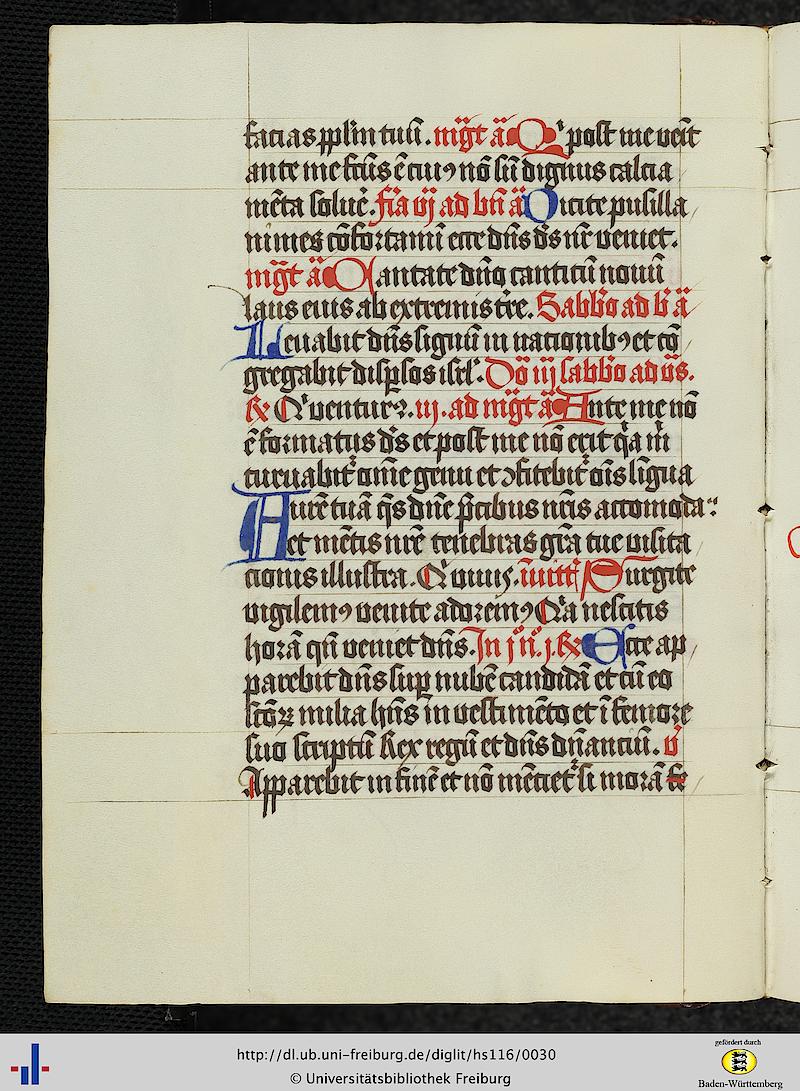 facias pplm̄ tuū. mg̅t ā Qi post me ven̅t
ante me fcūs ē cuiꝰ nō sū dignus calcia
mēta soluē. fīa vj ad bn̄ ā Dicite pusilla
nimes cōfortamī ecce dn̄s ds̄ nr̄ veniet.
mg̅t ā Cantate dn̄o canticū nouū
laus eius ab extremis tr̄e. Sabb̄o ad b̄ ā
Leuabit dn̄s signū in nationibꝰ et cō
gregabit disꝑsos isrl̄. Do̅ iij sabb̄o ad vs̄.
℟ Qi venturꝰ. iij. ad mg̅t ā Ante me nō
ē formatus ds̄ et post me nō erit qa m̄
curuabitr om̄e genu et ꝯfitebitr oīs līgua
Aurē tuā qs̄ dn̄e p̄cibus nr̄is accomoda
et mētis nr̄e tenebras gr̄a tue visita
tionis illustra. Qi viuis. inuitt̄ Surgite
vigilemꝰ venite adoremꝰ Qa nescitis
horā qn̄ veniet dn̄s. In jo no. j. ℟ Ecce ap
parebit dn̄s suꝑ nubē candidā et cū eo
sc̄oꝝ milia hn̄s in vestimēto et ī femore
suo scriptū Rex regū et dn̄s dn̄antiū. v̄
Apparebit in finē et nō mētietr si morā fe
http://dl.ub.uni-freiburg.de/diglit/hs116/0030
© Universitätsbibliothek Freiburg
gefördert durch
Baden-Württemberg